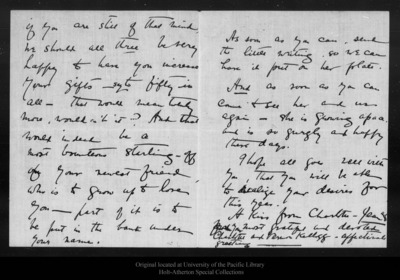 if you are still of that mind
we should all three be very
happy to have you increase
your gifts - fifty is
all - that would mean
more, would it? And that
would indeed be a
most bounteous sterling -
of your newest friend,
who is to grow up to love
you - part of it is to
be put in the bank under
your name.
As soon as you can, send
the little writing so we can
have it put on her plate.
And as soon as you can
come & see her and us
again - she is growing apace
and is so gurgly and happy
these days.
I hope all goes well with
you, that you will be able
to realize your desires for
this year.
A kiss from Charlotte -
most grateful and devoted
Charlotte Kellogg - affectionate
greeting
Original located at University of the Pacific Library
Holt-Atherton Special Collections